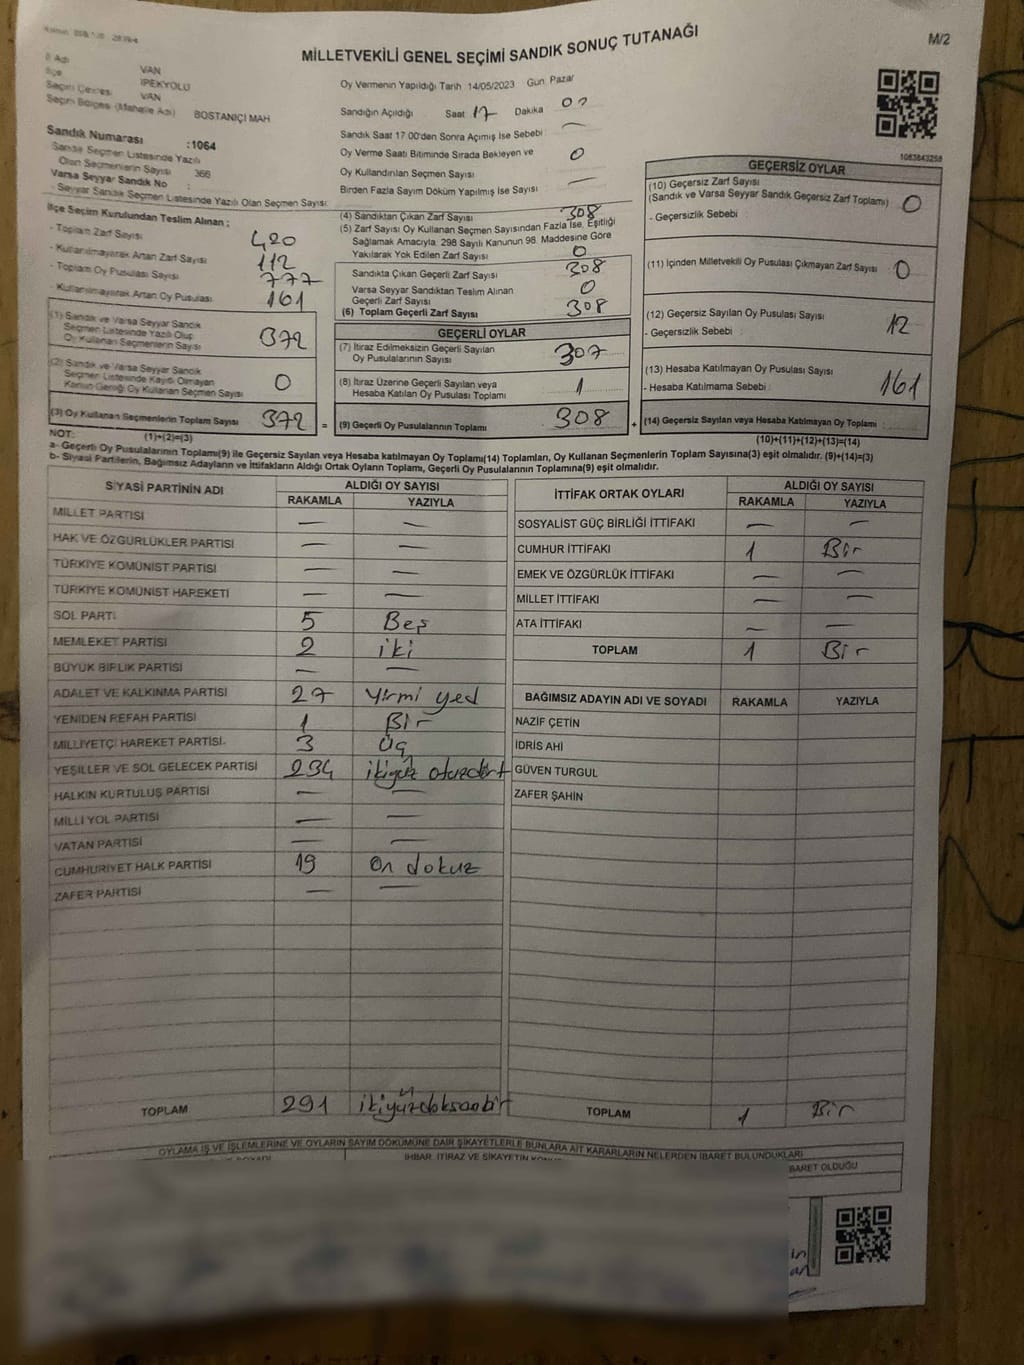 MİLLETVEKİLİ GENEL SEÇİMİ SANDIK SONUÇ TUTANAĞI
M/2
İl Adı VAN
İlçe İPEKYOLU
Seçim Çevresi VAN
Seçim Bölgesi (Mahalle Adı) BOSTANİÇİ MAH
Sandık Numarası :1064
Sandık Seçmen Listesinde Yazılı
Olan Seçmenlerin Sayısı 366
Varsa Seyyar Sandık No :
- Seyyar Sandık Seçmen Listesinde Yazılı Olan Seçmen Sayısı:
Oy Vermenin Yapıldığı Tarih 14/05/2023 Gün: Pazar
Sandığın Açıldığı Saat 17 Dakika
Sandık Saat 17:00'den Sonra Açımış İse Sebebi —
Oy Verme Saati Bitiminde Sırada Bekleyen ve
Oy Kullandırılan Seçmen Sayısı 0
Birden Fazla Sayım Döküm Yapılmış İse Sayısı —
1083843258
İlçe Seçim Kurulundan Teslim Alınan ;
- Toplam Zarf Sayısı 420
- Kullanılmayarak Artan Zarf Sayısı 112
- Toplam Oy Pusulası Sayısı 777
- Kullanılmayarak Artan Oy Pusulası 161
(1) Sandık ve Varsa Seyyar Sandık
Seçmen Listesinde Yazılı Olup
Oy Kullanan Seçmenlerin Sayısı 372
(2) Sandık ve Varsa Seyyar Sandık
Seçmen Listesinde Kaydı Olmayan
Kanun Gereği Oy Kullanan Seçmen Sayısı 0
(3) Oy Kullanan Seçmenlerin Toplam Sayısı 372 =
(4) Sandıktan Çıkan Zarf Sayısı 308
(5) Zarf Sayısı Oy Kullanan Seçmen Sayısından Fazla İse, Eşitliği
Sağlamak Amacıyla, 298 Sayılı Kanunun 98. Maddesine Göre
Yakılarak Yok Edilen Zarf Sayısı 0
Sandıkta Çıkan Geçerli Zarf Sayısı 308
Varsa Seyyar Sandıktan Teslim Alınan
Geçerli Zarf Sayısı 0
(6) Toplam Geçerli Zarf Sayısı 308
GEÇERLİ OYLAR
(7) İtiraz Edilmeksizin Geçerli Sayılan
Oy Pusulalarının Sayısı 307
(8) İtiraz Üzerine Geçerli Sayılan veya
Hesaba Katılan Oy Pusulası Toplamı 1
(9) Geçerli Oy Pusulalarının Toplamı 308 +
GEÇERSİZ OYLAR
(10) Geçersiz Zarf Sayısı
(Sandık ve Varsa Seyyar Sandık Geçersiz Zarf Toplamı) 0
- Geçersizlik Sebebi :
(11) İçinden Milletvekili Oy Pusulası Çıkmayan Zarf Sayısı 0
(12) Geçersiz Sayılan Oy Pusulası Sayısı 12
- Geçersizlik Sebebi :
(13) Hesaba Katılmayan Oy Pusulası Sayısı 161
- Hesaba Katılmama Sebebi :
(14) Geçersiz Sayılan veya Hesaba Katılmayan Oy Toplamı :
NOT: (1)+(2)=(3) (10)+(11)+(12)+(13)=(14)
a- Geçerli Oy Pusulalarının Toplamı(9) ile Geçersiz Sayılan veya Hesaba Katılmayan Oy Toplamı(14) Toplamları, Oy Kullanan Seçmenlerin Toplam Sayısına(3) eşit olmalıdır. (9)+(14)=(3)
b- Siyasi Partilerin, Bağımsız Adayların ve İttifakların Aldığı Ortak Oyların Toplamı, Geçerli Oy Pusulalarının Toplamına(9) eşit olmalıdır.
SİYASİ PARTİNİN ADI ALDIĞI OY SAYISI
RAKAMLA YAZIYLA
MİLLET PARTİSİ — —
HAK VE ÖZGÜRLÜKLER PARTİSİ — —
TÜRKİYE KOMÜNİST PARTİSİ — —
TÜRKİYE KOMÜNİST HAREKETİ — —
SOL PARTİ 5 Beş
MEMLEKET PARTİSİ 2 iki
BÜYÜK BİRLİK PARTİSİ — —
ADALET VE KALKINMA PARTİSİ 27 yirmi yed
YENİDEN REFAH PARTİSİ 1 Bir
MİLLİYETÇİ HAREKET PARTİSİ 3 Üç
YEŞİLLER VE SOL GELECEK PARTİSİ 234 ikiyüz otuzdört
HALKIN KURTULUŞ PARTİSİ — —
MİLLİ YOL PARTİSİ — —
VATAN PARTİSİ — —
CUMHURİYET HALK PARTİSİ 19 on dokuz
ZAFER PARTİSİ — —
TOPLAM 291 ikiyüzdoksanbir
İTTİFAK ORTAK OYLARI ALDIĞI OY SAYISI
RAKAMLA YAZIYLA
SOSYALİST GÜÇ BİRLİĞİ İTTİFAKI — —
CUMHUR İTTİFAKI 1 Bir
EMEK VE ÖZGÜRLÜK İTTİFAKI — —
MİLLET İTTİFAKI — —
ATA İTTİFAKI — —
TOPLAM 1 Bir
BAĞIMSIZ ADAYIN ADI VE SOYADI RAKAMLA YAZIYLA
NAZİF ÇETİN
İDRİS AHİ
GÜVEN TURGUL
ZAFER ŞAHİN
TOPLAM 1 Bir
OYLAMA İŞ VE İŞLEMLERİNE VE OYLARIN SAYIM DÖKÜMÜNE DAİR ŞİKAYETLERLE BUNLARA AİT KARARLARIN NELERDEN İBARET BULUNDUKLARI
İHBAR, İTİRAZ VE ŞİKAYETİN
BARET OLDUĞU